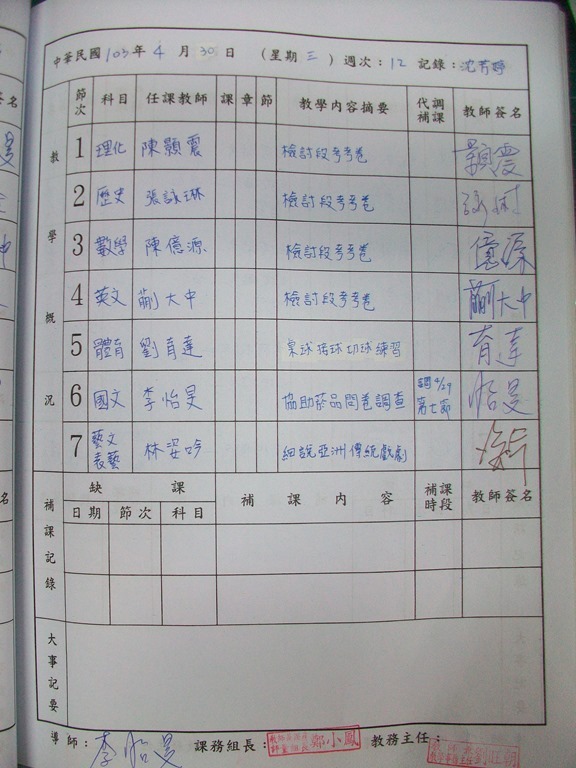 中華民國103年4月30日 (星期三) 週次:12 記錄:沈芳婷
教學概況
節次 科目 任課教師 課 章 節 教學內容摘要 代調補課 教師簽名
1 理化 陳顥震 檢討段考考卷 顥震
2 歷史 張詠琳 檢討段考考卷 詠琳
3 數學 陳億源 檢討段考考卷 億源
4 英文 蒯大中 檢討段考考卷 蒯大中
5 體育 劉育達 切球練習 育達
6 國文 李怡旻 協助菸品問卷調查 調4/29第七節 怡旻
7 藝文表藝 林姿吟 細說亞洲傳統戲劇
補課記錄
缺課 補課內容 補課時段 教師簽名
日期 節次 科目
大事記要
導師:李怡旻 課務組長:鄭小鳳 教務主任: